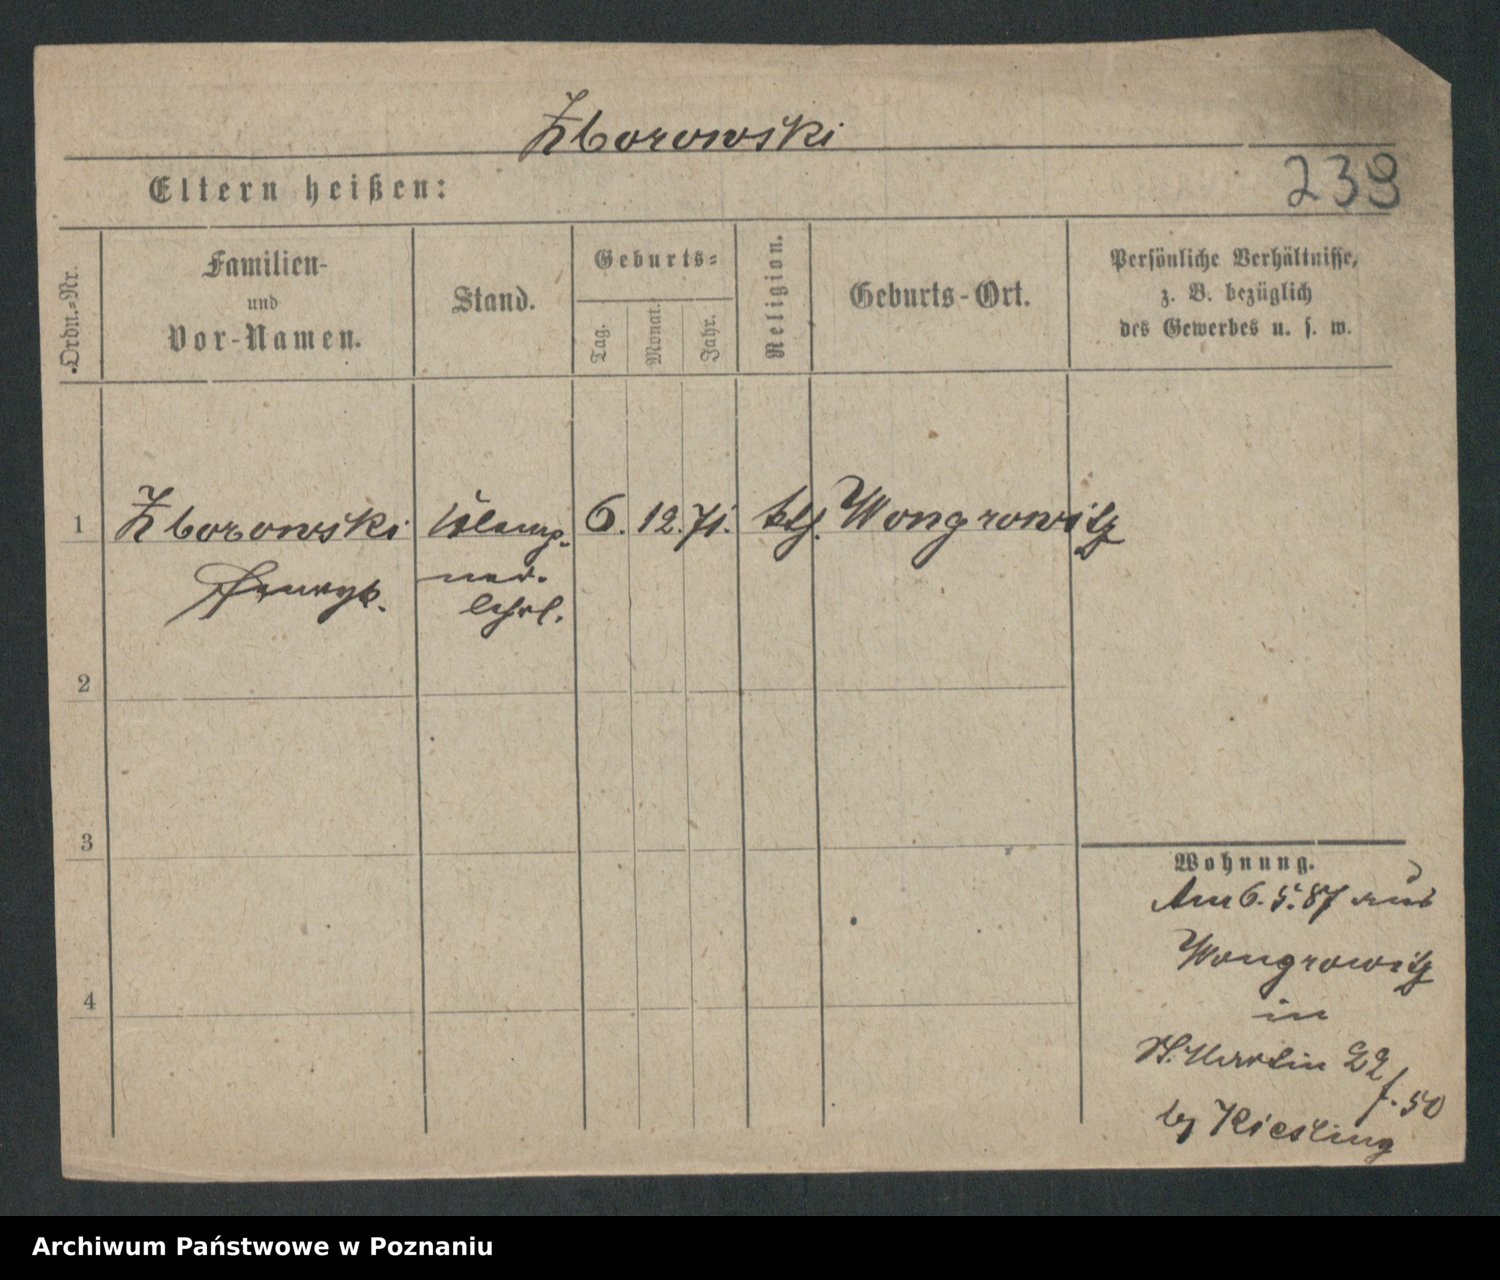 Zborowski
239
Eltern heißen:
Ordn.-Nr.
Familien-
und
Vor-Namen.
Stand.
Geburts-
Tag.
Monat.
Jahr.
Religion.
Geburts-Ort.
Persönliche Verhältnisse,
z. B. bezüglich
des Gewerbes u. s. w.
1 Zborowski Klemp- 6. 12. 71. ktl. Wongrowitz
Henryk. ner-
lehrl.
2
3
4
Wohnung.
Am 6. 5. 87 aus
Wongrowitz
in
St. Martin 22
f. 50
by Kiesling
Archiwum Państwowe w Poznaniu